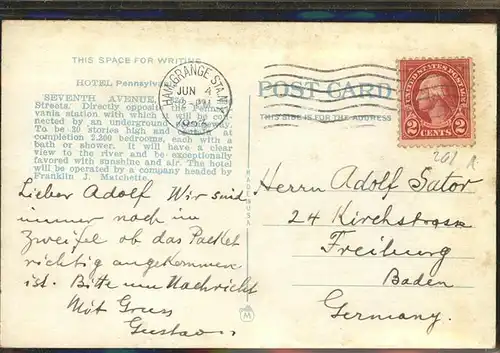 THIS SPACE FOR WRITING
HOTEL Pennsylvania
SEVENTH AVENUE,
Streets. Directly opposite the Pennsyl-
vania station with which it will be con-
nected by an underground
To be 30 stories high and
completion 2,200 bedrooms, each with a
bath or shower. It will have a clear
view to the river and be exceptionally
favored with sunshine and air. The hotel
will be operated by a company headed by
Franklin J. Matchette.
Lieber Adolf Wir sind
immer noch im
Zweifel ob das Packet
richtig angekommen
ist. Bitte um Nachricht
Mit Gruss
Gustav
HAMGRANGE STA. N.Y.
JUN 4
2-PM
POST CARD
THIS SIDE IS FOR THE ADDRESS
UNITED STATES POSTAGE
2 CENTS 2
MADE IN U.S.A.
Herrn Adolf Sator
24 Kirchstrasse
Freiburg
Baden
Germany.
M